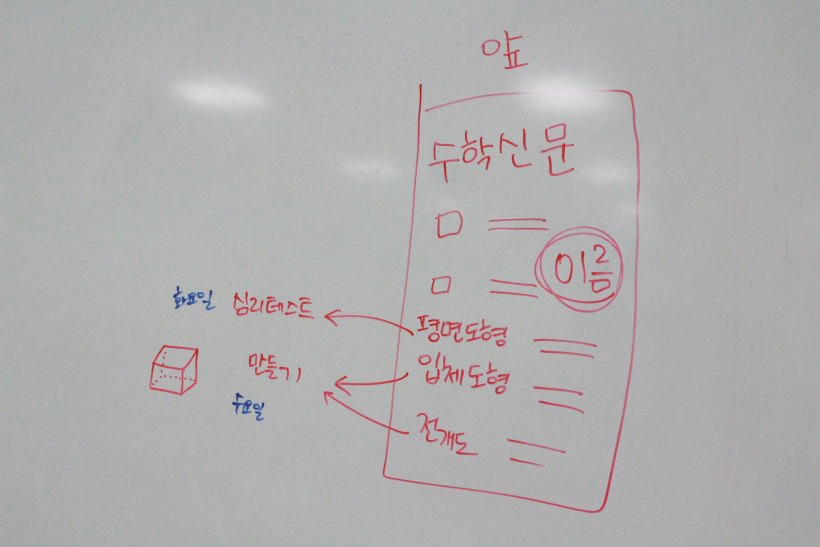 앞
수학신문
이름
화요일 심리테스트
평면도형
만들기
입체도형
수요일
전개도